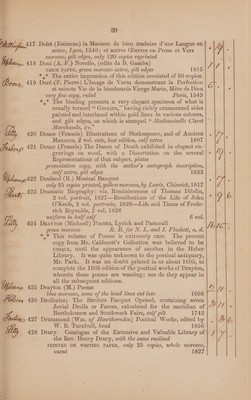 29
417 Dolet (Estienne) la Maniere de bien traduire d'une Langue en
autre, Lyon, 1540; et autres Œuvres en Prose et Vers
morocco, gilt edges, only 120 copies reprinted
418 Doni (A. F.) Novelle, (edite da B. Gamba)
thick paper, green morocco extra, gilt edges 1815
*** The entire impression of this edition consisted of 80 copies.
419 Doré (F. Pierre) L'Image de Vertu demonstrant la Perfection
et saincte Vie de la bienheurée Vierge Marie, Mère de Dieu
very fine copy, ruled Paris, 1549
*** The binding presents a very elegant specimen of what is
usually termed "Grolier," having richly ornamented sides
painted and interlaced within gold lines in various colours,
and gilt edges, on which is stamped "Mademoiselle Claret
Marchande, &c."
420 Douce (Francis) Illustrations of Shakespeare, and of Ancient
Manners, 2 vol. cuts, best edition, calf extra 1807
421 Douce (Francis) The Dance of Death exhibited in elegant en-
gravings on wood, with a Dissertation on the several
Representations of that subject, plates
presentation copy, with the author's autograph inscription,
calf extra, gilt edges 1833
422 Douland (R.) Musical Banquet
only 25 copies printed, yellow morocco, by Lewis, Chiswick, 1817
423 Dramatic Biography: viz. Reminiscences of Thomas Dibdin,
2 vol. portrait, 1827—Recollections of the Life of John
O'Keefe, 2 vol. portraits, 1826—Life and Times of Frede-
rick Reynolds, 2 vol. 1826
uniform in half calf 6 vol.
424 Drayton (Michaell) Poemes, Lyrick and Pastorall
green morocco R. B. for N. L. and I. Flasket, n. d.
*** This volume of Poems is extremely rare. The present
copy from Mr. Caldecott's Collection was believed to be
unique, until the appearance of another in the Heber
Library. It was quite unknown to the poetical antiquary,
Mr. Park. It was no doubt printed in or about 1605, to
complete the 1605 edition of the poetical works of Drayton,
wherein these poems are wanting; nor do they appear in
all the subsequent editions.
425 Drayton (M.) Poems
blue morocco, some of the head lines cut into 1608
426 Drolleries; The Strolers Pacquet Opened, containing seven
Jovial Drolls or Farces, calculated for the meridian of
Bartholomew and Southwark Fairs, calf gilt 1742
427 Drummond (Wm. of Hawthornden) Poetical Works, edited by
W. B. Turnbull, head 1856
428 Drury. Catalogue of the Extensive and Valuable Library of
the Rev. Henry Drury, with the same realised
printed on writing paper, only 25 copies, whole morocco,
uncut 1827